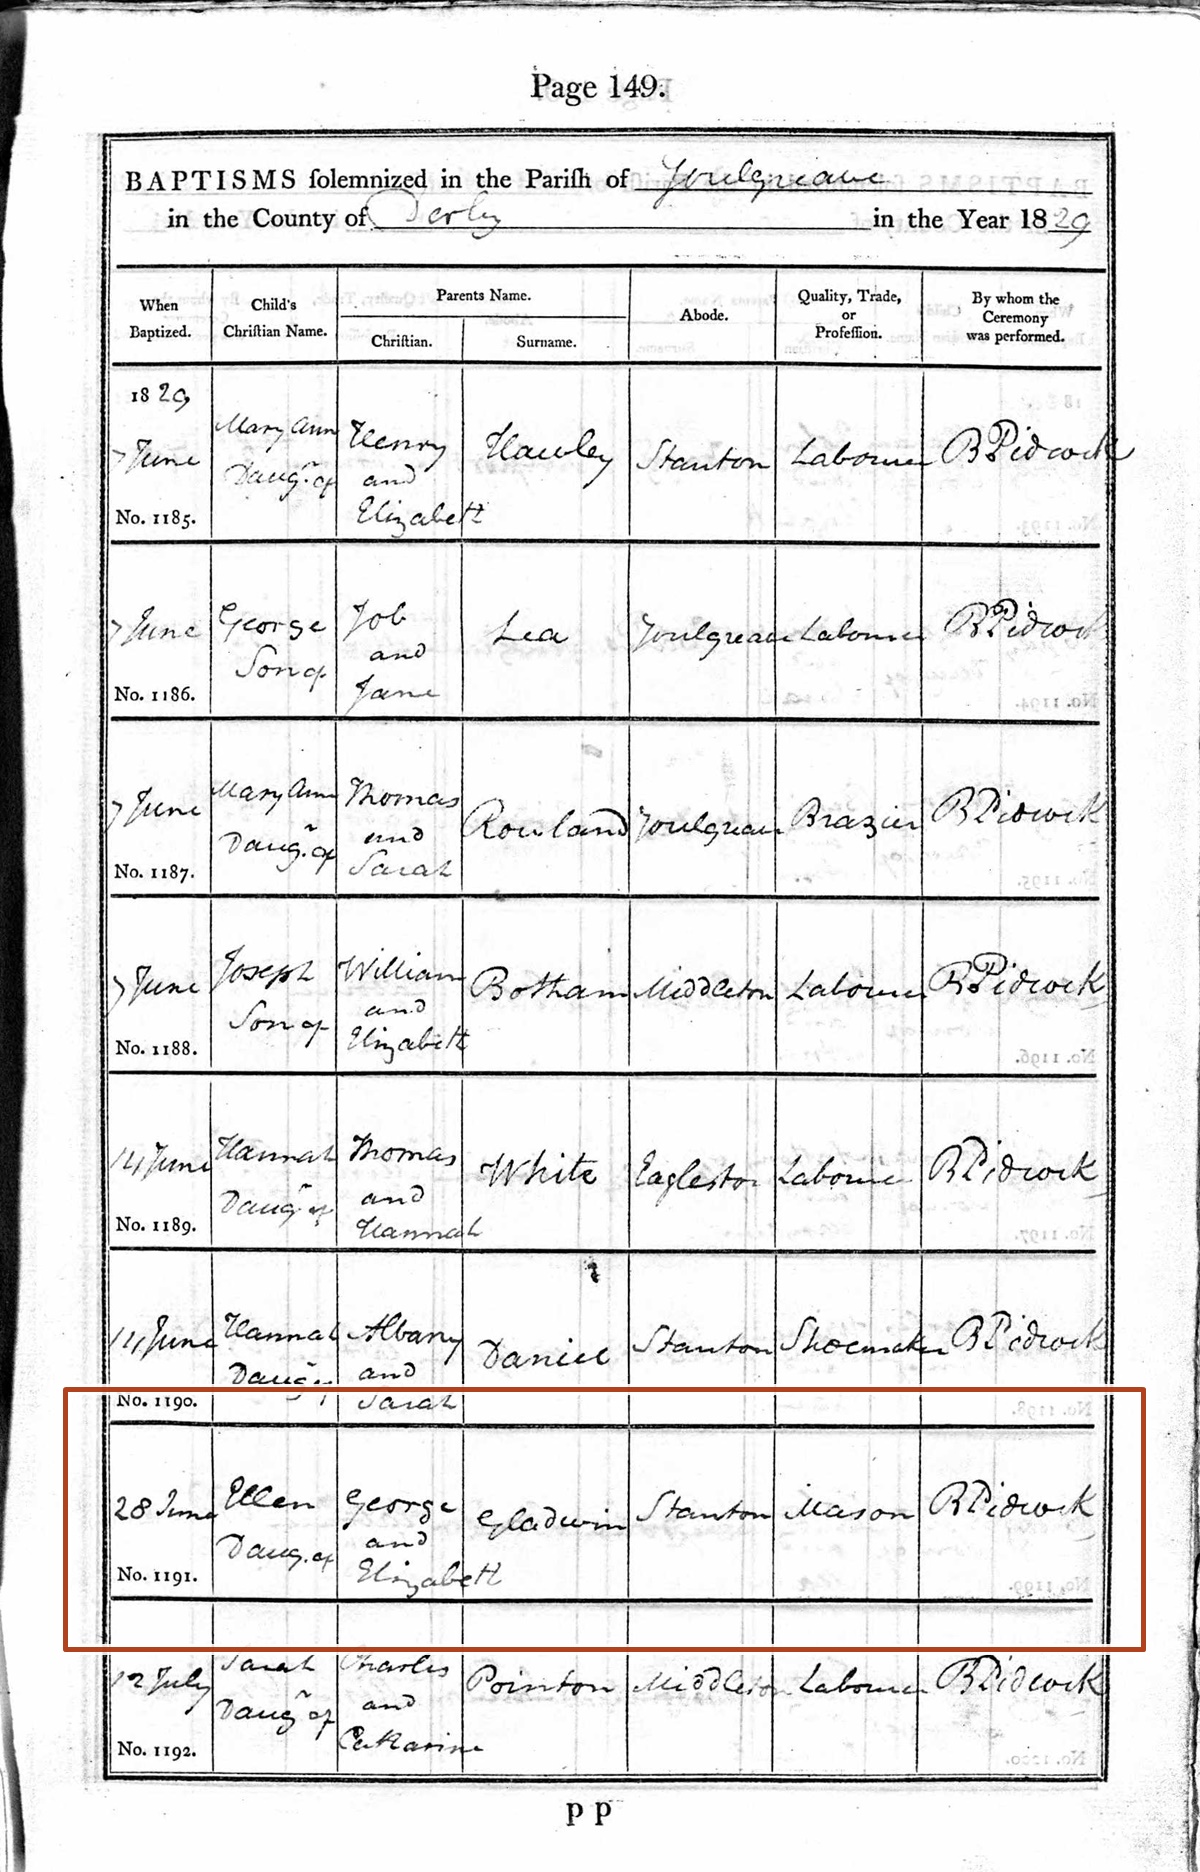 Page 149.
BAPTISMS ſolemnized in the Pariſh of Youlgreave
in the County of Derby in the Year 1829
When Baptized.
Child's Chriſtian Name.
Parents Name.
Chriſtian.
Surname.
Abode.
Quality, Trade, or Profeſſion.
By whom the Ceremony was performed.
1829
7 June
No. 1185.
Mary Ann
Daugr. of
Henry
and
Elizabeth
Hawley
Stanton
Labourer
B Pidcock
7 June
No. 1186.
George
Son of
Job
and
Jane
Lea
Youlgreave
Labourer
B Pidcock
7 June
No. 1187.
Mary Ann
Daugr. of
Thomas
and
Sarah
Rowland
Youlgreave
Brazier
B Pidcock
7 June
No. 1188.
Joseph
Son of
William
and
Elizabeth
Botham
Middleton
Labourer
B Pidcock
14 June
No. 1189.
Hannah
Daugr. of
Thomas
and
Hannah
White
Eagleston
Labourer
B Pidcock
14 June
No. 1190.
Hannah
Daugr. of
Albany
and
Sarah
Daniel
Stanton
Shoemaker
B Pidcock
28 June
No. 1191.
Ellen
Daug. of
George
and
Elizabeth
Gladwin
Stanton
Mason
B Pidcock
12 July
No. 1192.
Sarah
Daugr. of
Charles
and
Catharine
Pointon
Middleton
Labourer
B Pidcock
P P